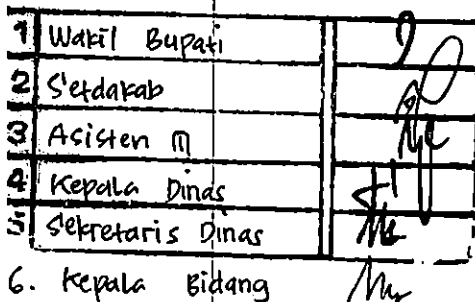 1 Wakil Bupati
2 Setdakab
3 Asisten III
4 Kepala Dinas
5 Sekretaris Dinas
6. Kepala Bidang